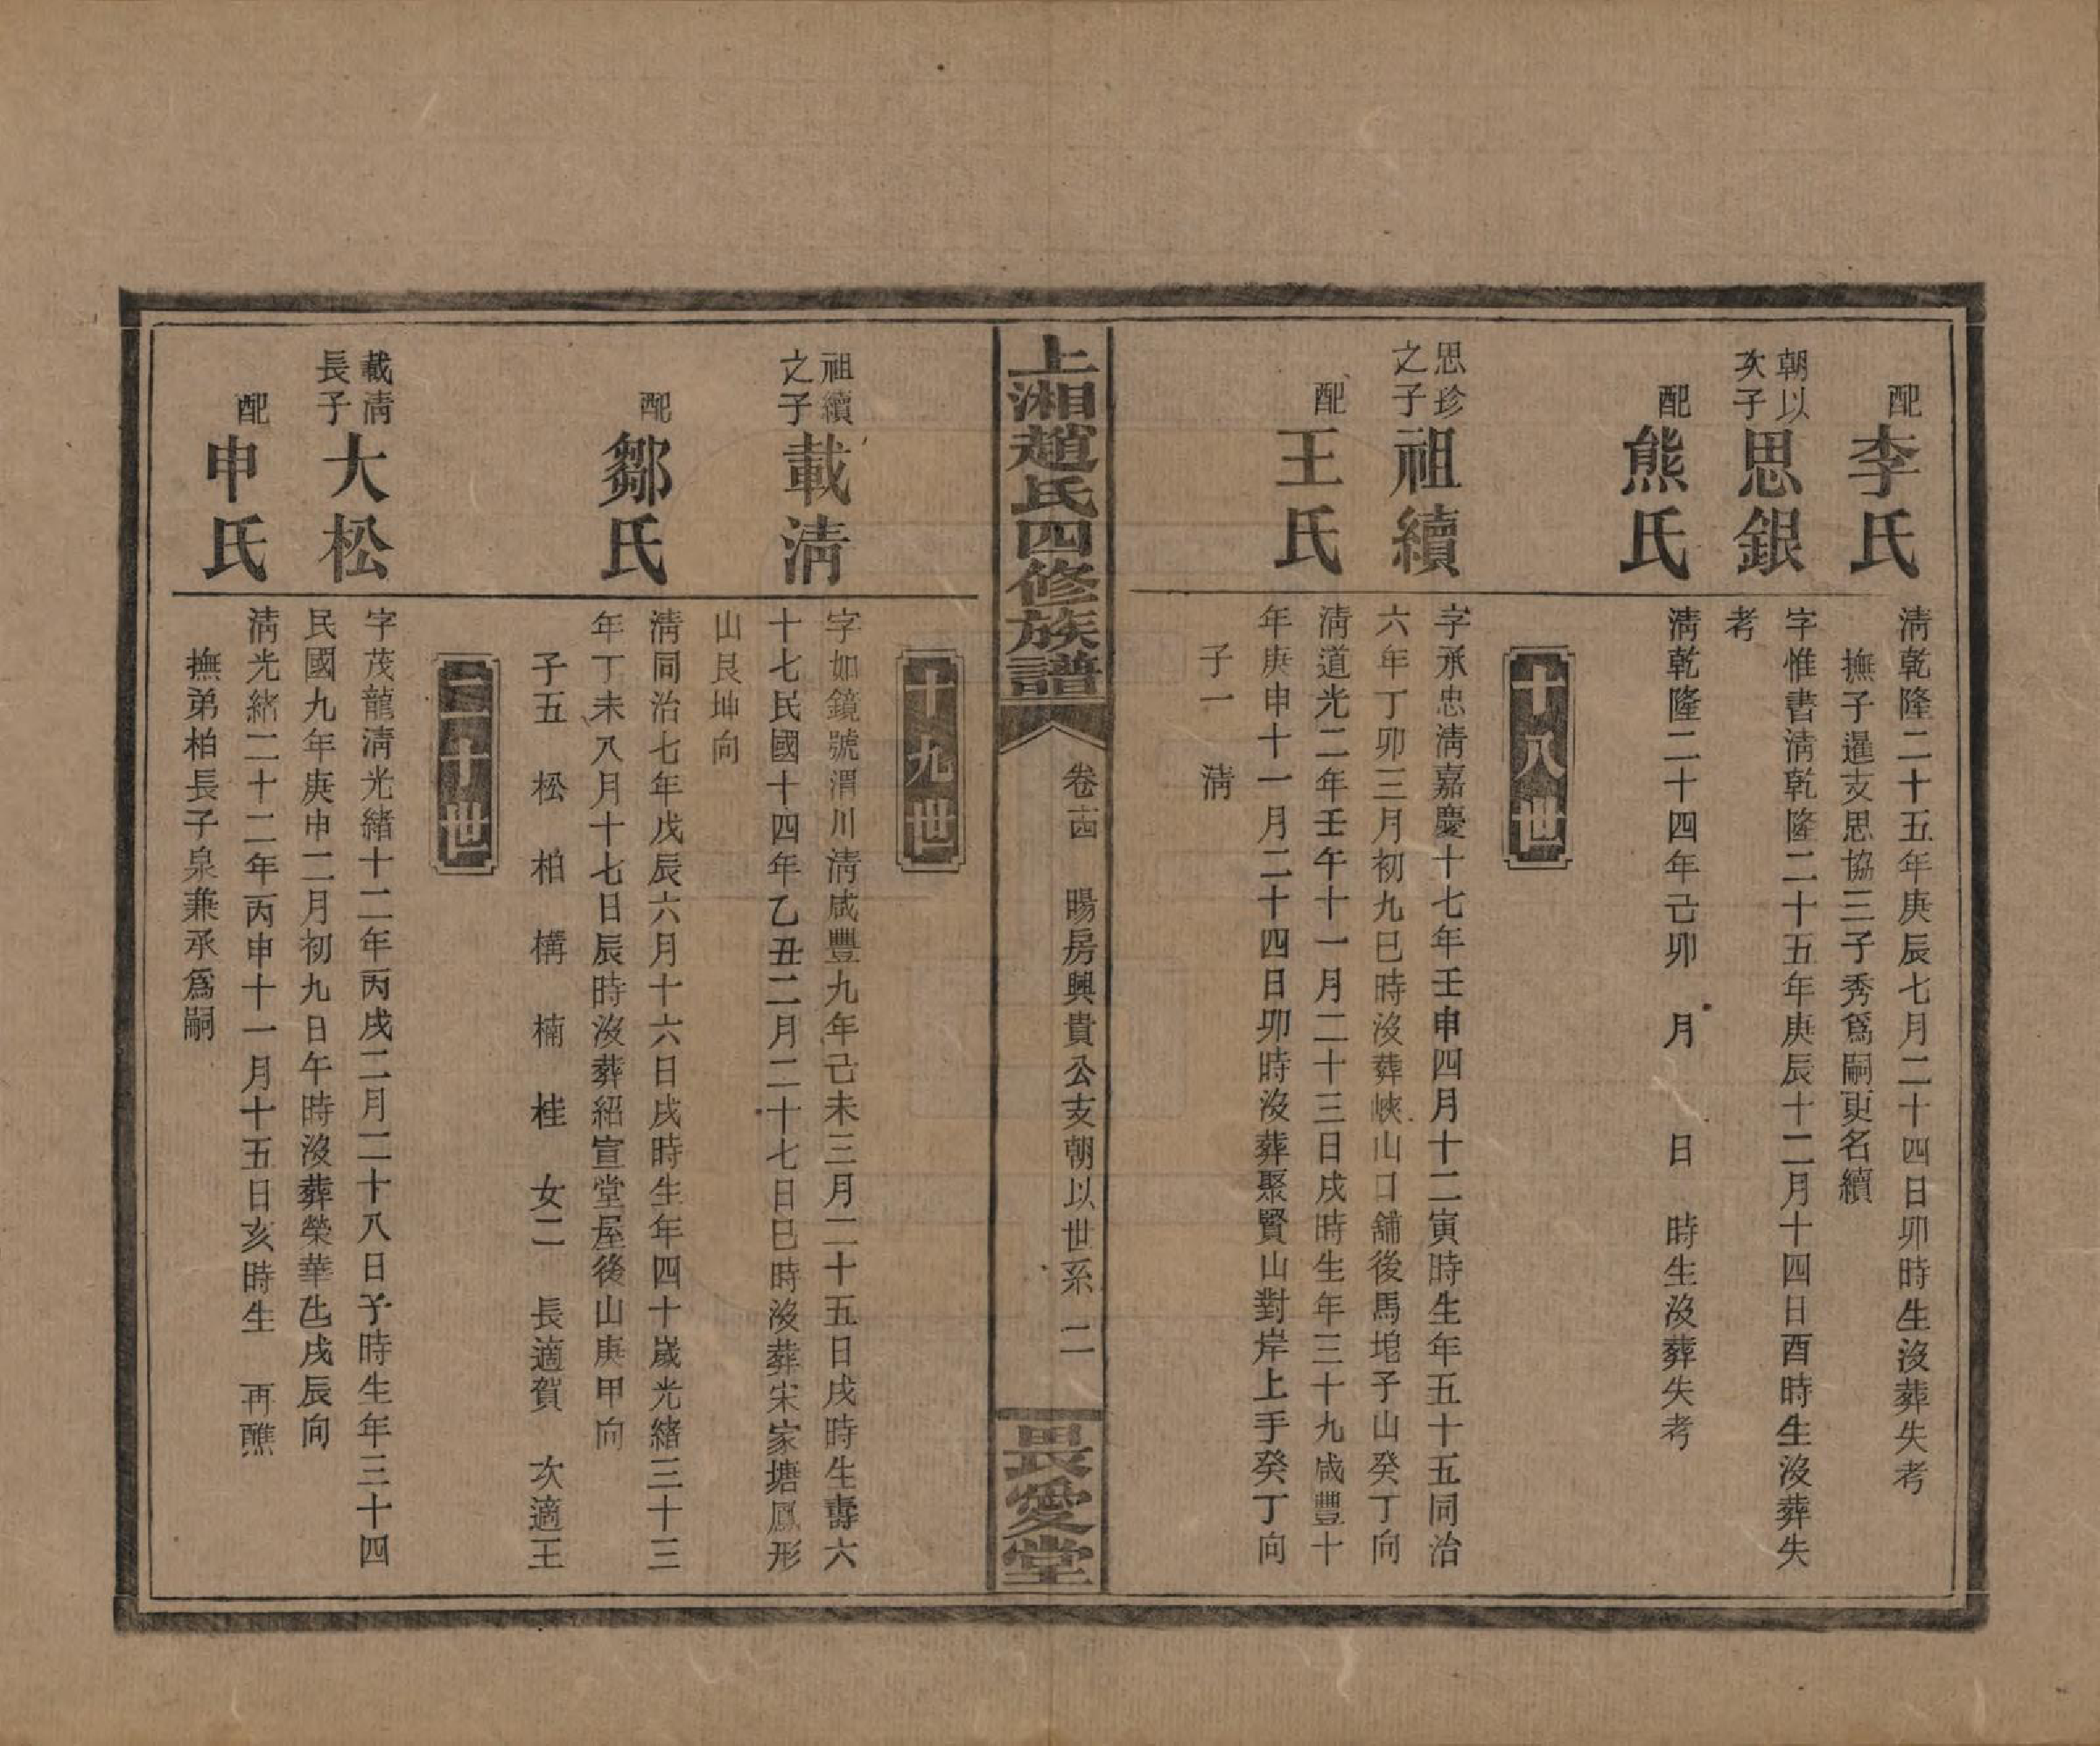 配李氏
清乾隆二十五年庚辰七月二十四日卯時生沒葬失考
撫子暹支思協三子秀爲嗣更名續
朝以次子思銀
字惟書清乾隆二十五年庚辰十二月十四日酉時生沒葬失
考
配熊氏
清乾隆二十四年己卯 月 日 時生沒葬失考
十八世
思珍之子祖續
字承忠清嘉慶十七年壬申四月十二寅時生年五十五同治
六年丁卯三月初九巳時沒葬峽山口舖後馬垉子山癸丁向
配王氏
清道光二年壬午十一月二十三日戌時生年三十九咸豐十
年庚申十一月二十四日卯時沒葬聚賢山對岸上手癸丁向
子一 清
上湘趙氏四修族譜 卷十四 暘房興貴公支朝以世系 二 畏愛堂
十九世
祖續之子載清
字如鏡號渭川清咸豐九年己未三月二十五日戌時生壽六
十七民國十四年乙丑二月二十七日巳時沒葬宋家塘鳳形
山艮坤向
配鄒氏
清同治七年戊辰六月十六日戌時生年四十歲光緒三十三
年丁未八月十七日辰時沒葬紹宣堂屋後山庚甲向
子五 松 柏 構 楠 桂 女二 長適賀 次適王
二十世
載清長子大松
字茂龍清光緒十二年丙戌二月二十八日子時生年三十四
民國九年庚申二月初九日午時沒葬榮華乜戌辰向
配申氏
清光緒二十二年丙申十一月十五日亥時生 再醮
撫弟柏長子泉兼承爲嗣